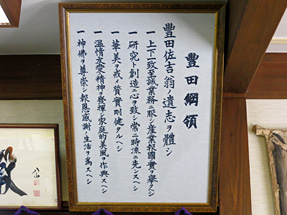 豊田綱領
豊田佐吉翁ノ遺志ヲ體シ
一、上下一致至誠業務ニ服シ産業報國ノ實ヲ擧クヘシ
一、研究ト創造ニ心ヲ致シ常ニ時流ニ先ンスヘシ
一、華美ヲ戒メ質實剛健タルヘシ
一、温情友愛ノ精神ヲ發揮シ家庭的美風ヲ作興スヘシ
一、神佛ヲ尊崇シ報恩感謝ノ生活ヲ爲スヘシ